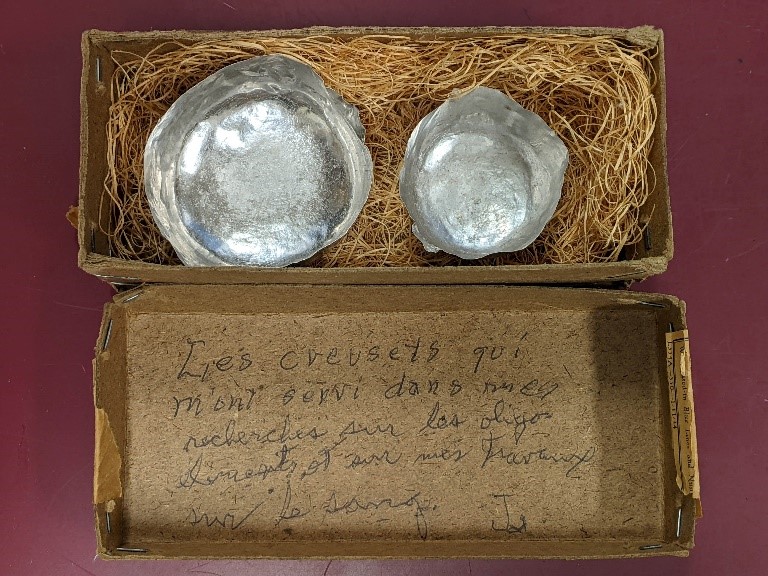 Les creusets qui
m'ont servi dans mes
recherches sur les oligo
elements et sur mes travaux
sur le sang.